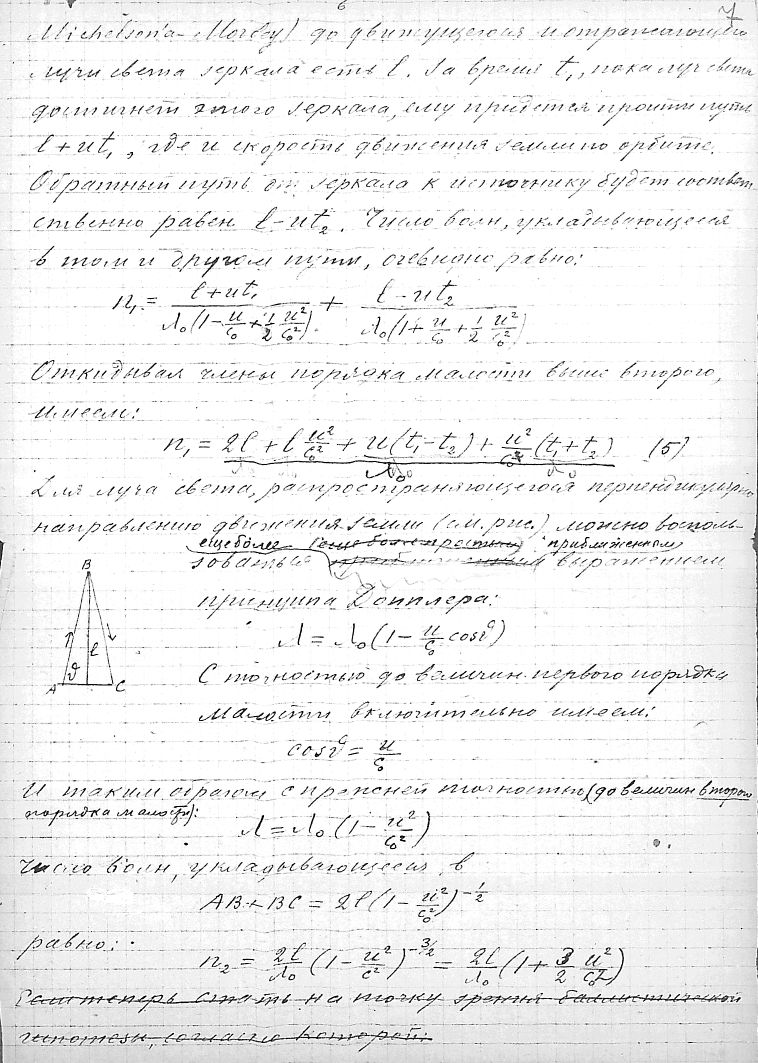 6
7
Michelson'a-Morley) до движущегося и отражающего
лучи света зеркала есть l. За время t₁, пока луч света
достигнет этого зеркала, ему придется пройти путь
l+ut₁, где u скорость движения земли по орбите.
Обратный путь от зеркала к источнику будет соответ-
ственно равен l-ut₂. Число волн, укладывающееся
в том и другом пути, очевидно равно:
n₁ = (l+ut₁)/(λ₀(1-u/c₀+½ u²/c₀²)) + (l-ut₂)/(λ₀(1+u/c₀+½ u²/c₀²))
Откидывая члены порядка малости выше второго,
имеем:
n₁ = 2l + l u²/c₀² + u(t₁-t₂) + u²/c₀ (t₁+t₂) (5)
λ₀
Для луча света, распространяющегося перпендикулярно
направлению движения земли (см. рис.) можно восполь-
еще более приближенным
зоваться выражением
принципа Допплера:
B
l
ϑ
A
C
λ = λ₀(1-u/c₀ cosϑ)
С точностью до величин первого порядка
малости включительно имеем:
cosϑ = u/c₀
И таким образом с прежней точностью (до величин второго
порядка малости):
λ = λ₀(1-u²/c₀²)
Число волн, укладывающееся в
AB+BC = 2l(1-u²/c₀²)^(-1/2)
равно:
n₂ = 2l/λ₀ (1-u²/c²)^(-3/2) = 2l/λ₀ (1+3/2 u²/c₀²)
Если теперь стать на точку зрения баллистической
гипотезы, согласно которой: